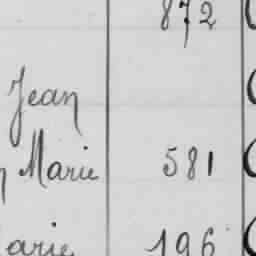 872
Jean
Marie 581
arie 196